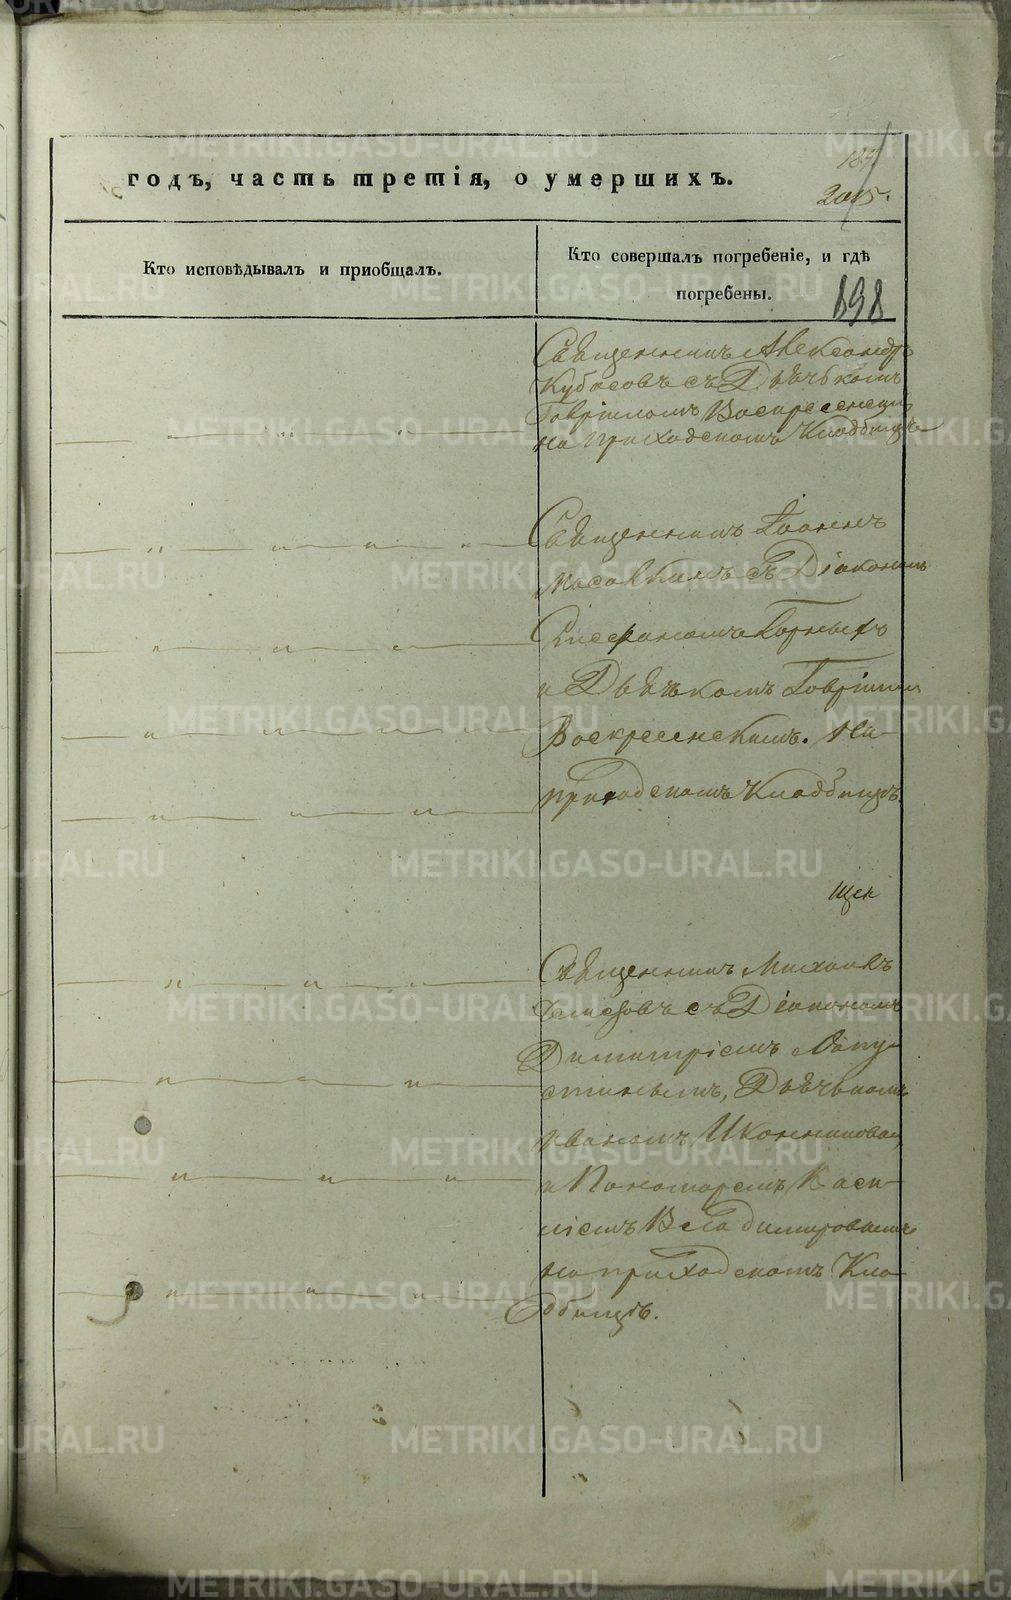 годъ, часть третія, о умершихъ.
2015.
Кто исповѣдывалъ и приобщалъ.
Кто совершалъ погребеніе, и гдѣ
погребены.
898
Священникъ Александръ
Кубасовъ съ Дьячкомъ
Гавріиломъ Воскресенскимъ
на приходскомъ Кладбищѣ
Священникъ Іоаннъ
съ Діакономъ
Горныхъ
и Дьячкомъ Гавріиломъ
Воскресенскимъ. На
приходскомъ Кладбищѣ.
Священникъ Михаилъ
съ Діакономъ
Димитріемъ Лапу-
стинымъ, Дьячкомъ
Иваномъ Иконниковымъ
и Пономаремъ Васи-
ліемъ Владимировымъ
на приходскомъ Кла-
дбищѣ.
METRIKI.GASO-URAL.RU